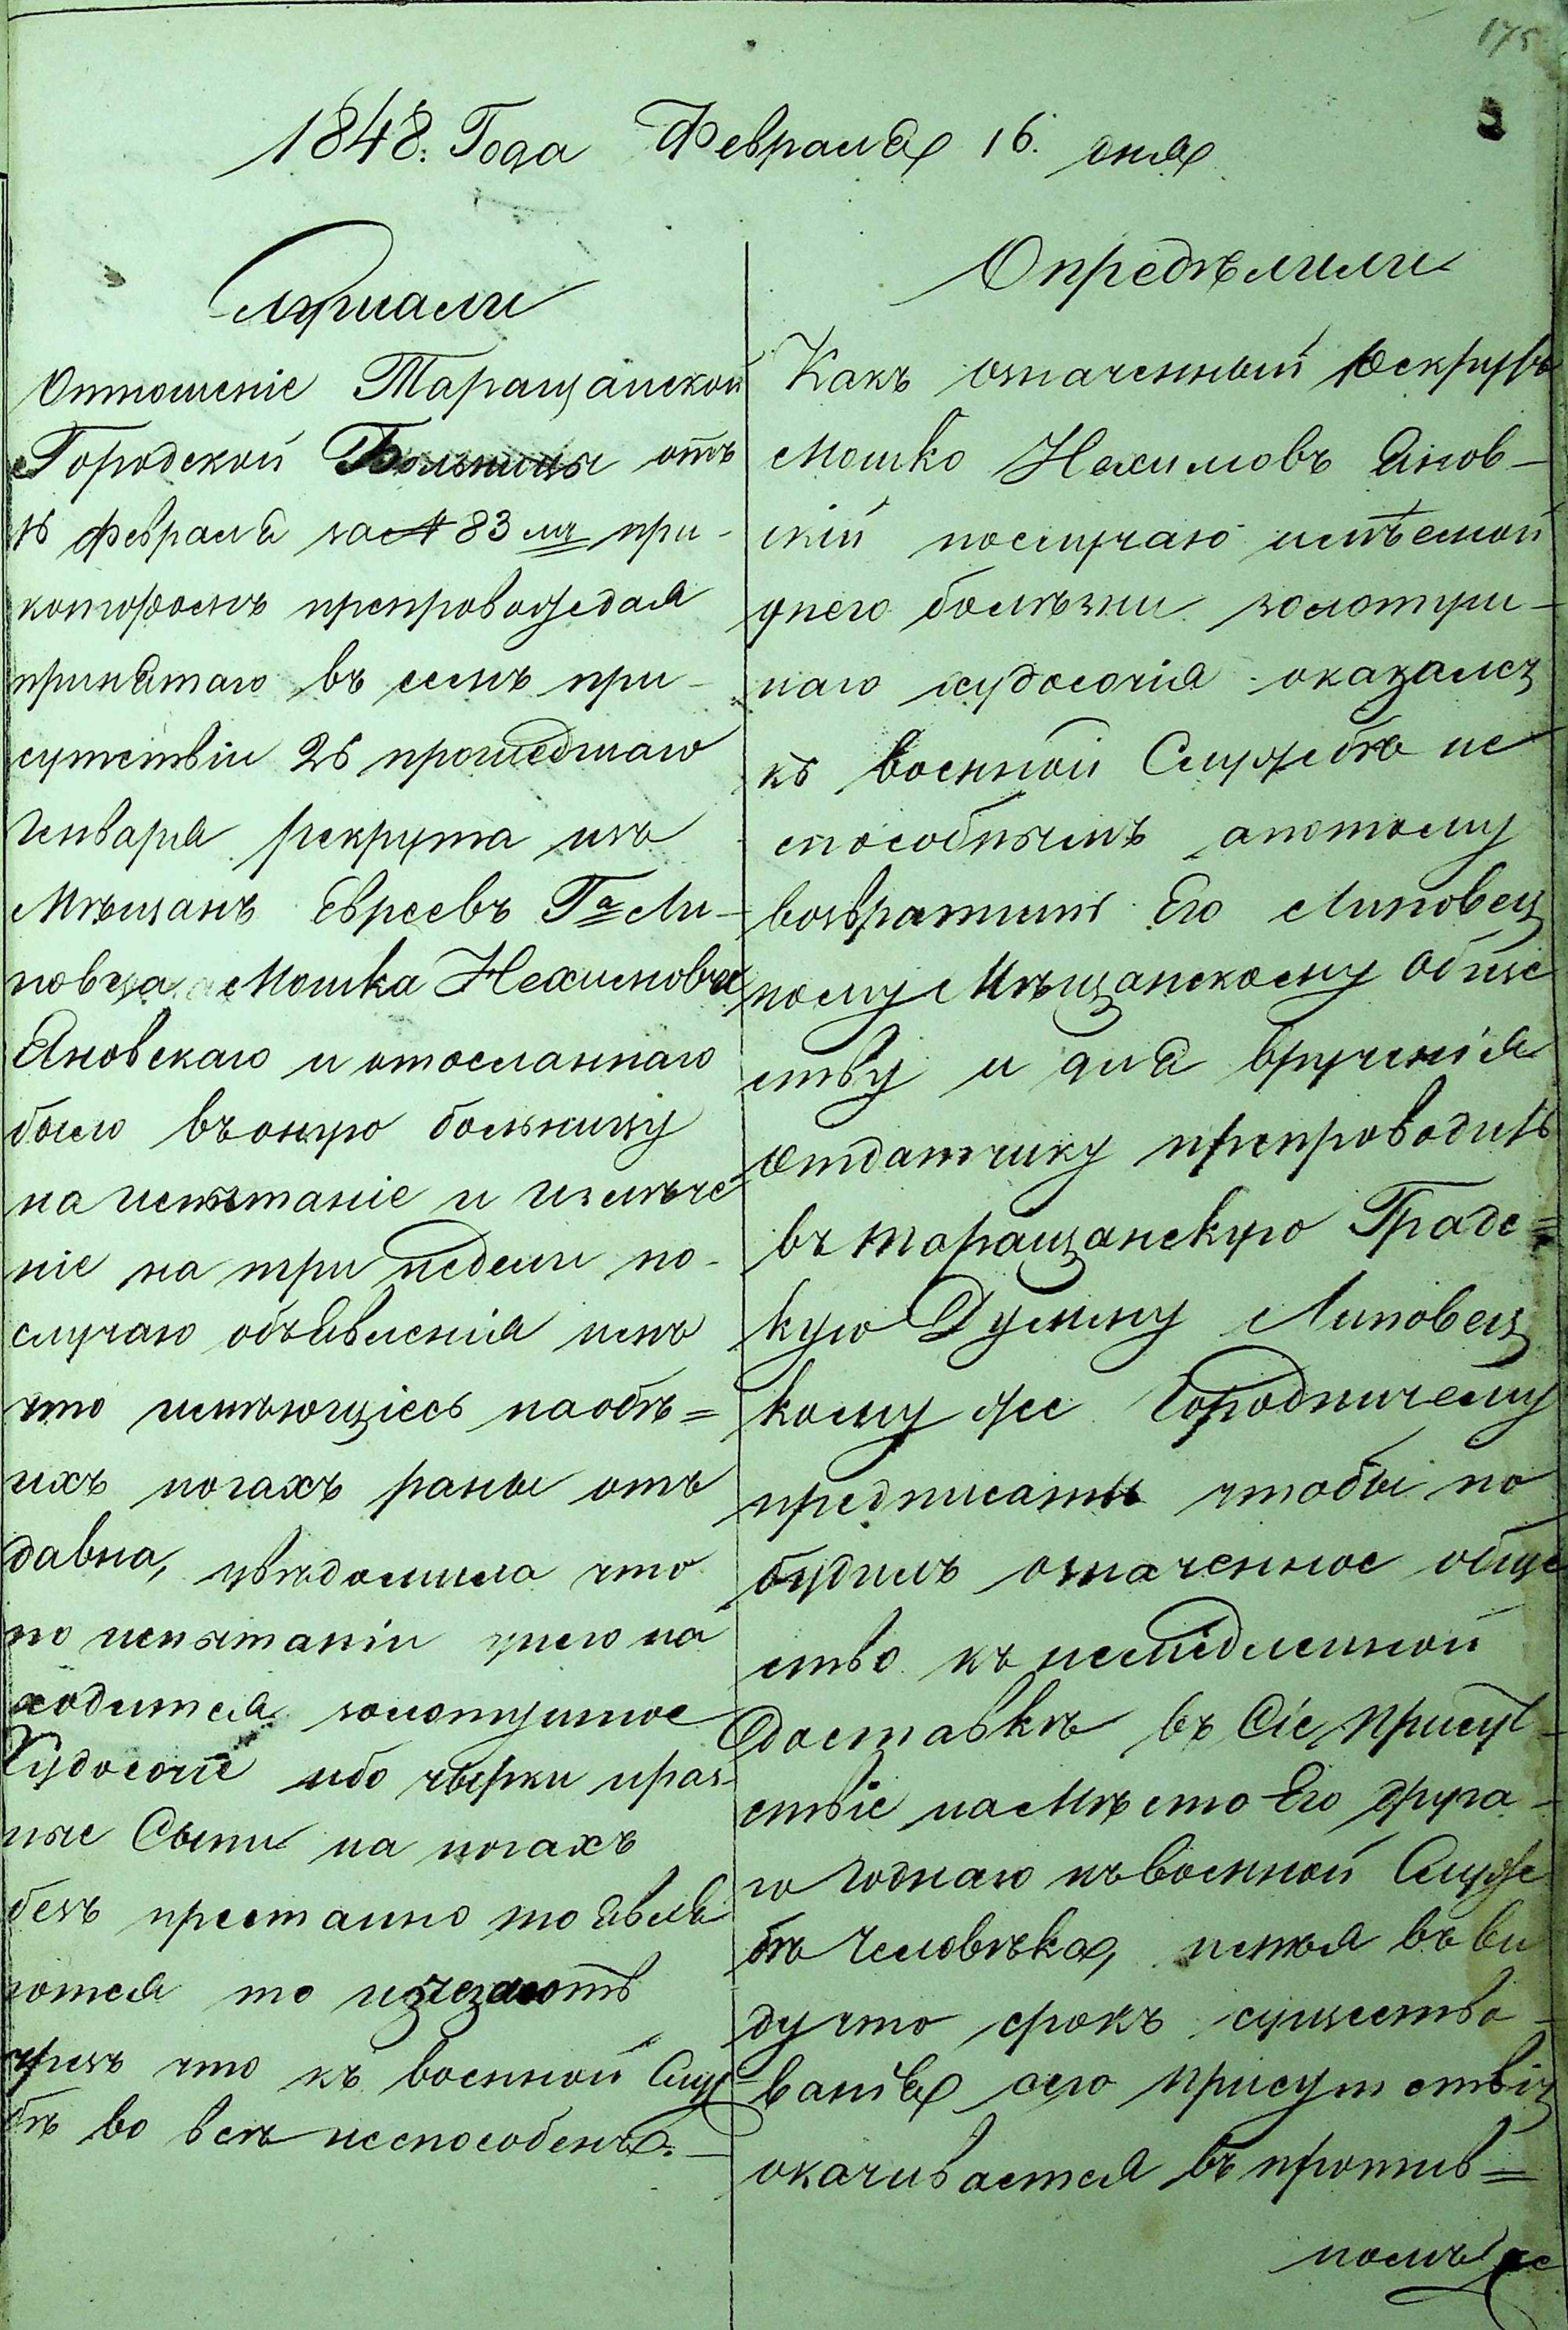 175
1848. Года Февраля 16. дня
Слушали
Отношеніе Таращанской
Городской Больницы отъ
16 февраля за № 83 мъ при
которомъ препровождая
принятаго въ семъ при-
сутствіи 26 прошедшаго
Генваря рекрута изъ
Мѣщанъ Евреевъ Га Ли-
повца Мошка Нехимова
Яновскаго и отосланнаго
было въ оную больницу
на испытаніе и излѣче
ніе на три недели по-
случаю объявленія имъ
что имѣющіесь на обѣ=
ихъ ногахъ раны отъ
давна, увѣдомила что
по испытаніи унего на
ходится золотушное
Худосочіе ибо чырки и раз-
ные Сыпи на ногахъ
безъ престанно то явля
ются то изчезаютъ
чрезъ что къ военной Служ
бѣ во все неспособенъ.
Опредѣлили
Какъ означенный Рекрутъ
Мошко Нехимовъ Янов-
скій послучаю имѣемой
унего болѣзни золотуш-
наго худосочія оказался
къ военной Службѣ не
способнымъ а потому
возвратить Его Липовец
кому Мѣщанскому Обще
ству и для врученія
Отдатчику препроводить
въ Таращанскую Градс=
кую Думу Липовец
кому же Городничему
предписать чтобы по
будилъ означенное обще
ство къ немедленной
Доставкѣ въ Сіе Присут-
ствіе на мѣсто Его друга-
го годнаго къ военной Служ
бѣ Человѣка, имѣя въ ви
ду что срокъ существо-
ванія сего Присутствія
окачивается въ против=
номъ же